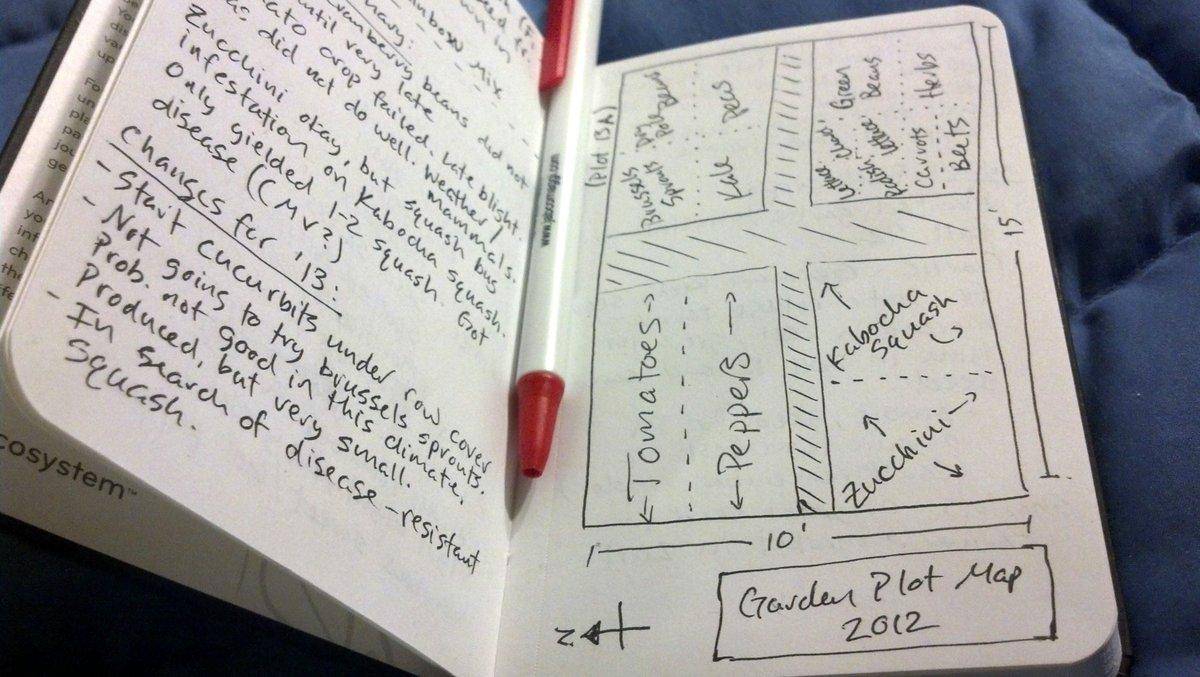 until very late
Cranberry beans did not
crop failed. Late blight.
did not do well. Weather/
mammals.
Zucchini okay, but squash bug
infestation on Kabocha squash.
Only yielded 1-2 squash. Got
disease (CMV?)
Changes for '13:
- Start cucurbits under row cover
- Not going to try brussels sprouts.
Prob. not good in this climate.
Produced, but very small.
- In search of disease-resistant
squash.
cosystem™
(Plot 13A)
Brussels
Sprouts
Pole Beans
Kale
Peas
Lettuce, Chard, Green
Radish, Lettuce Beans
Carrots Herbs
Beets
← Tomatoes →
← Peppers →
Kabocha
Squash
Zucchini
15'
10'
N
Garden Plot Map
2012